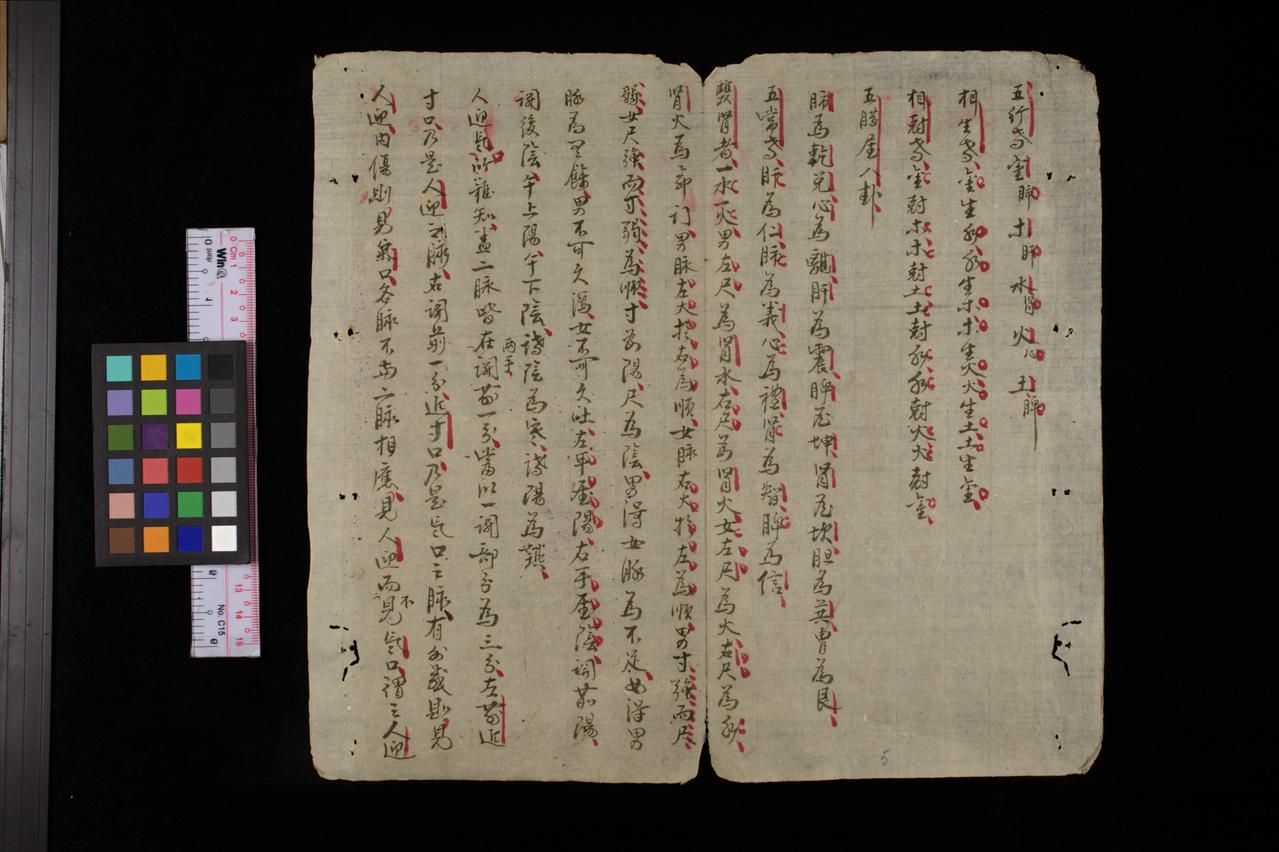 五行者金肺木肝水腎火心土脾
相生者金生水水生木木生火火生土土生金
相尅者金尅木木尅土土尅水水尅火火尅金
五臟屬八卦
肺為乾兌心為離肝為震脾為坤腎為坎胆為巽胃為艮
五常者肝為仁肺為義心為禮腎為智脾為信
腎者一水一火男左尺為腎水右尺為腎火女左尺為火右尺為水
腎火為命门男脉左大於右為順女脉右大於左為順男寸強而尺
弱女尺強而寸弱為順寸為陽尺為陰男得女脉為不足女得男
脉為有餘男不可久瀉女不可久吐左手屬陽右手屬陰関前陽
関後陰午上陽午下陰診陰為寒診陽為熱
人迎氣所難知盖二脉皆在両手関前一分當以一関部分為三分左前近
寸口乃是人迎之脉右関前一分近寸口乃是气口之脉有外感則見
人迎内傷則見氣口各脉不与二脉相應見人迎而不見气口謂之人迎